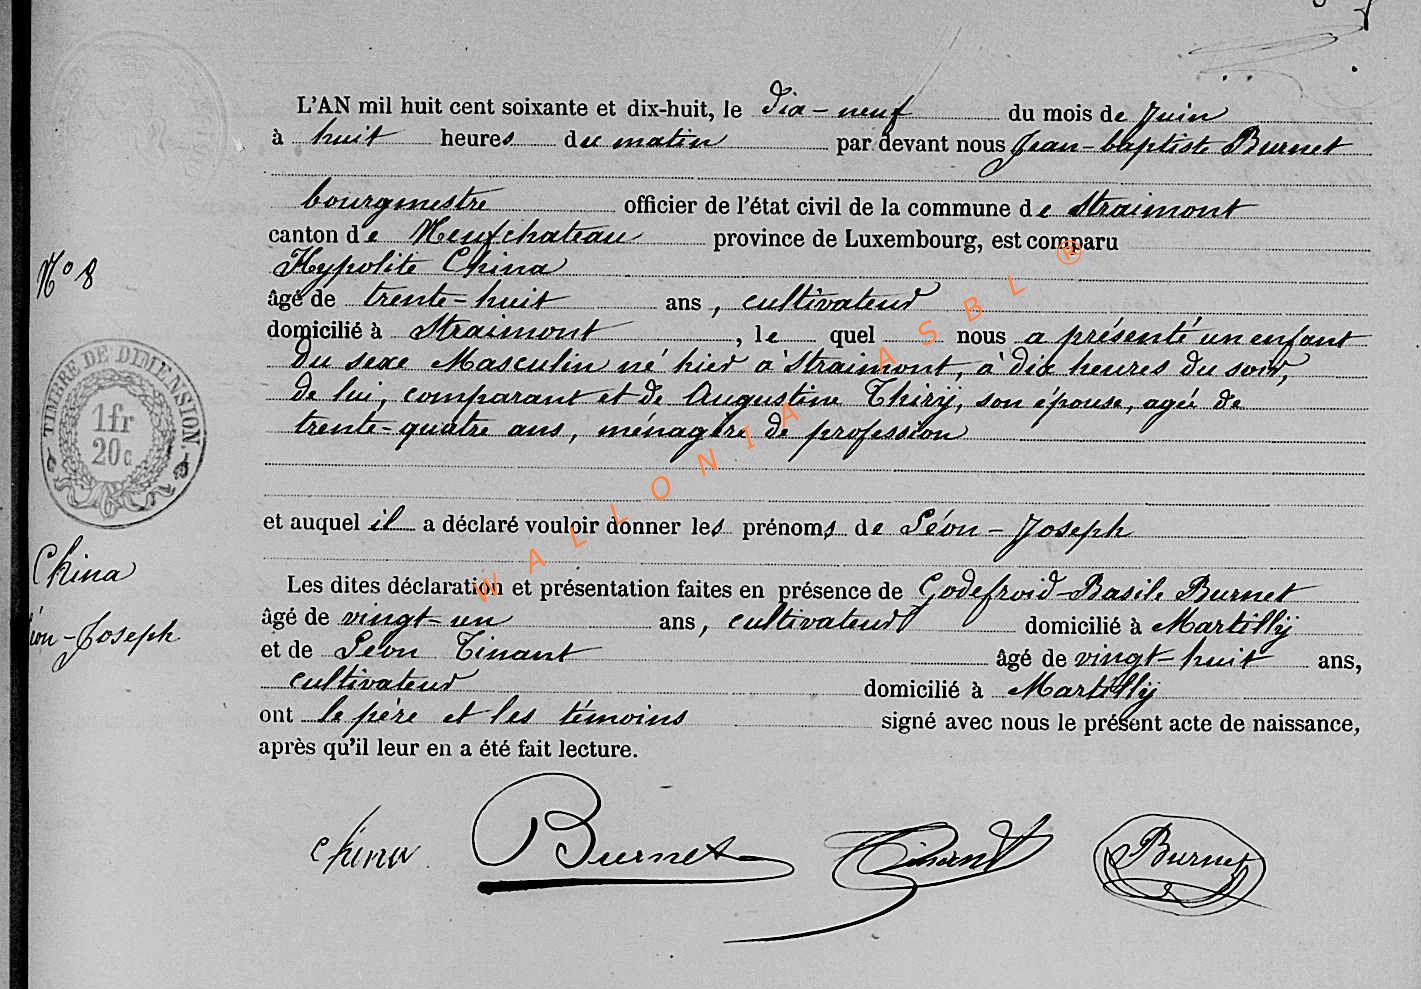 L'AN mil huit cent soixante et dix-huit, le dix-neuf du mois de Juin
à huit heures du matin par devant nous Jean-baptiste Burnet
bourgmestre officier de l'état civil de la commune de Straimont
canton de Neufchateau province de Luxembourg, est comparu
Hypolite China
âgé de trente-huit ans, cultivateur
domicilié à Straimont, lequel nous a présenté un enfant
du sexe Masculin né hier à Straimont, à dix heures du soir,
de lui, comparant et de Augustine Thiry, son épouse, agée de
trente-quatre ans, ménagère de profession
et auquel il a déclaré vouloir donner les prénoms de Léon-Joseph
Les dites déclaration et présentation faites en présence de Godefroid-Basile Burnet
âgé de vingt-un ans, cultivateur domicilié à Martilly
et de Léon Tinant âgé de vingt-huit ans,
cultivateur domicilié à Martilly
ont le père et les témoins signé avec nous le présent acte de naissance,
après qu'il leur en a été fait lecture.
China Burnet Tinant Burnet
N° 8
TIMBRE DE DIMENSION
1fr
20c
China
Léon-Joseph
WALLONIA ASBL ®